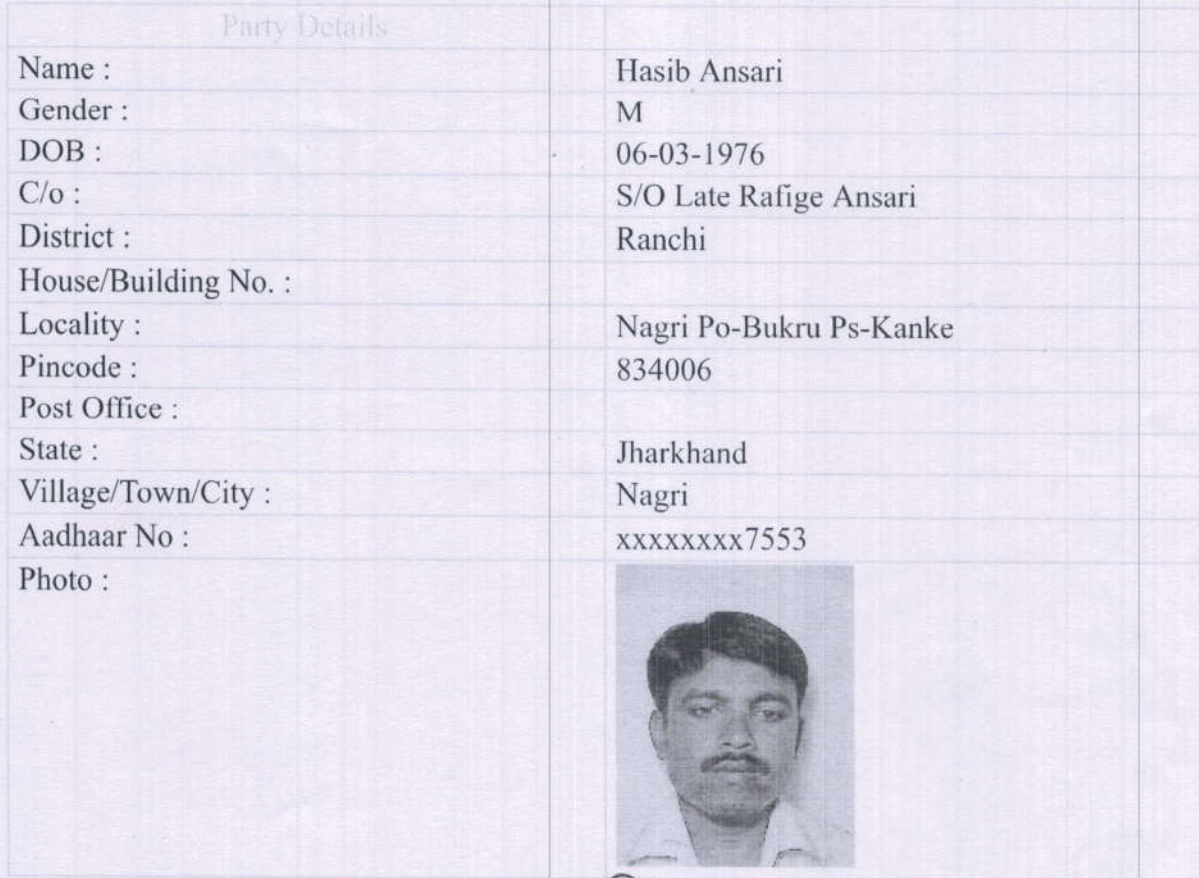 Party Details
Name : Hasib Ansari
Gender : M
DOB : 06-03-1976
C/o : S/O Late Rafige Ansari
District : Ranchi
House/Building No. :
Locality : Nagri Po-Bukru Ps-Kanke
Pincode : 834006
Post Office :
State : Jharkhand
Village/Town/City : Nagri
Aadhaar No : xxxxxxxx7553
Photo :